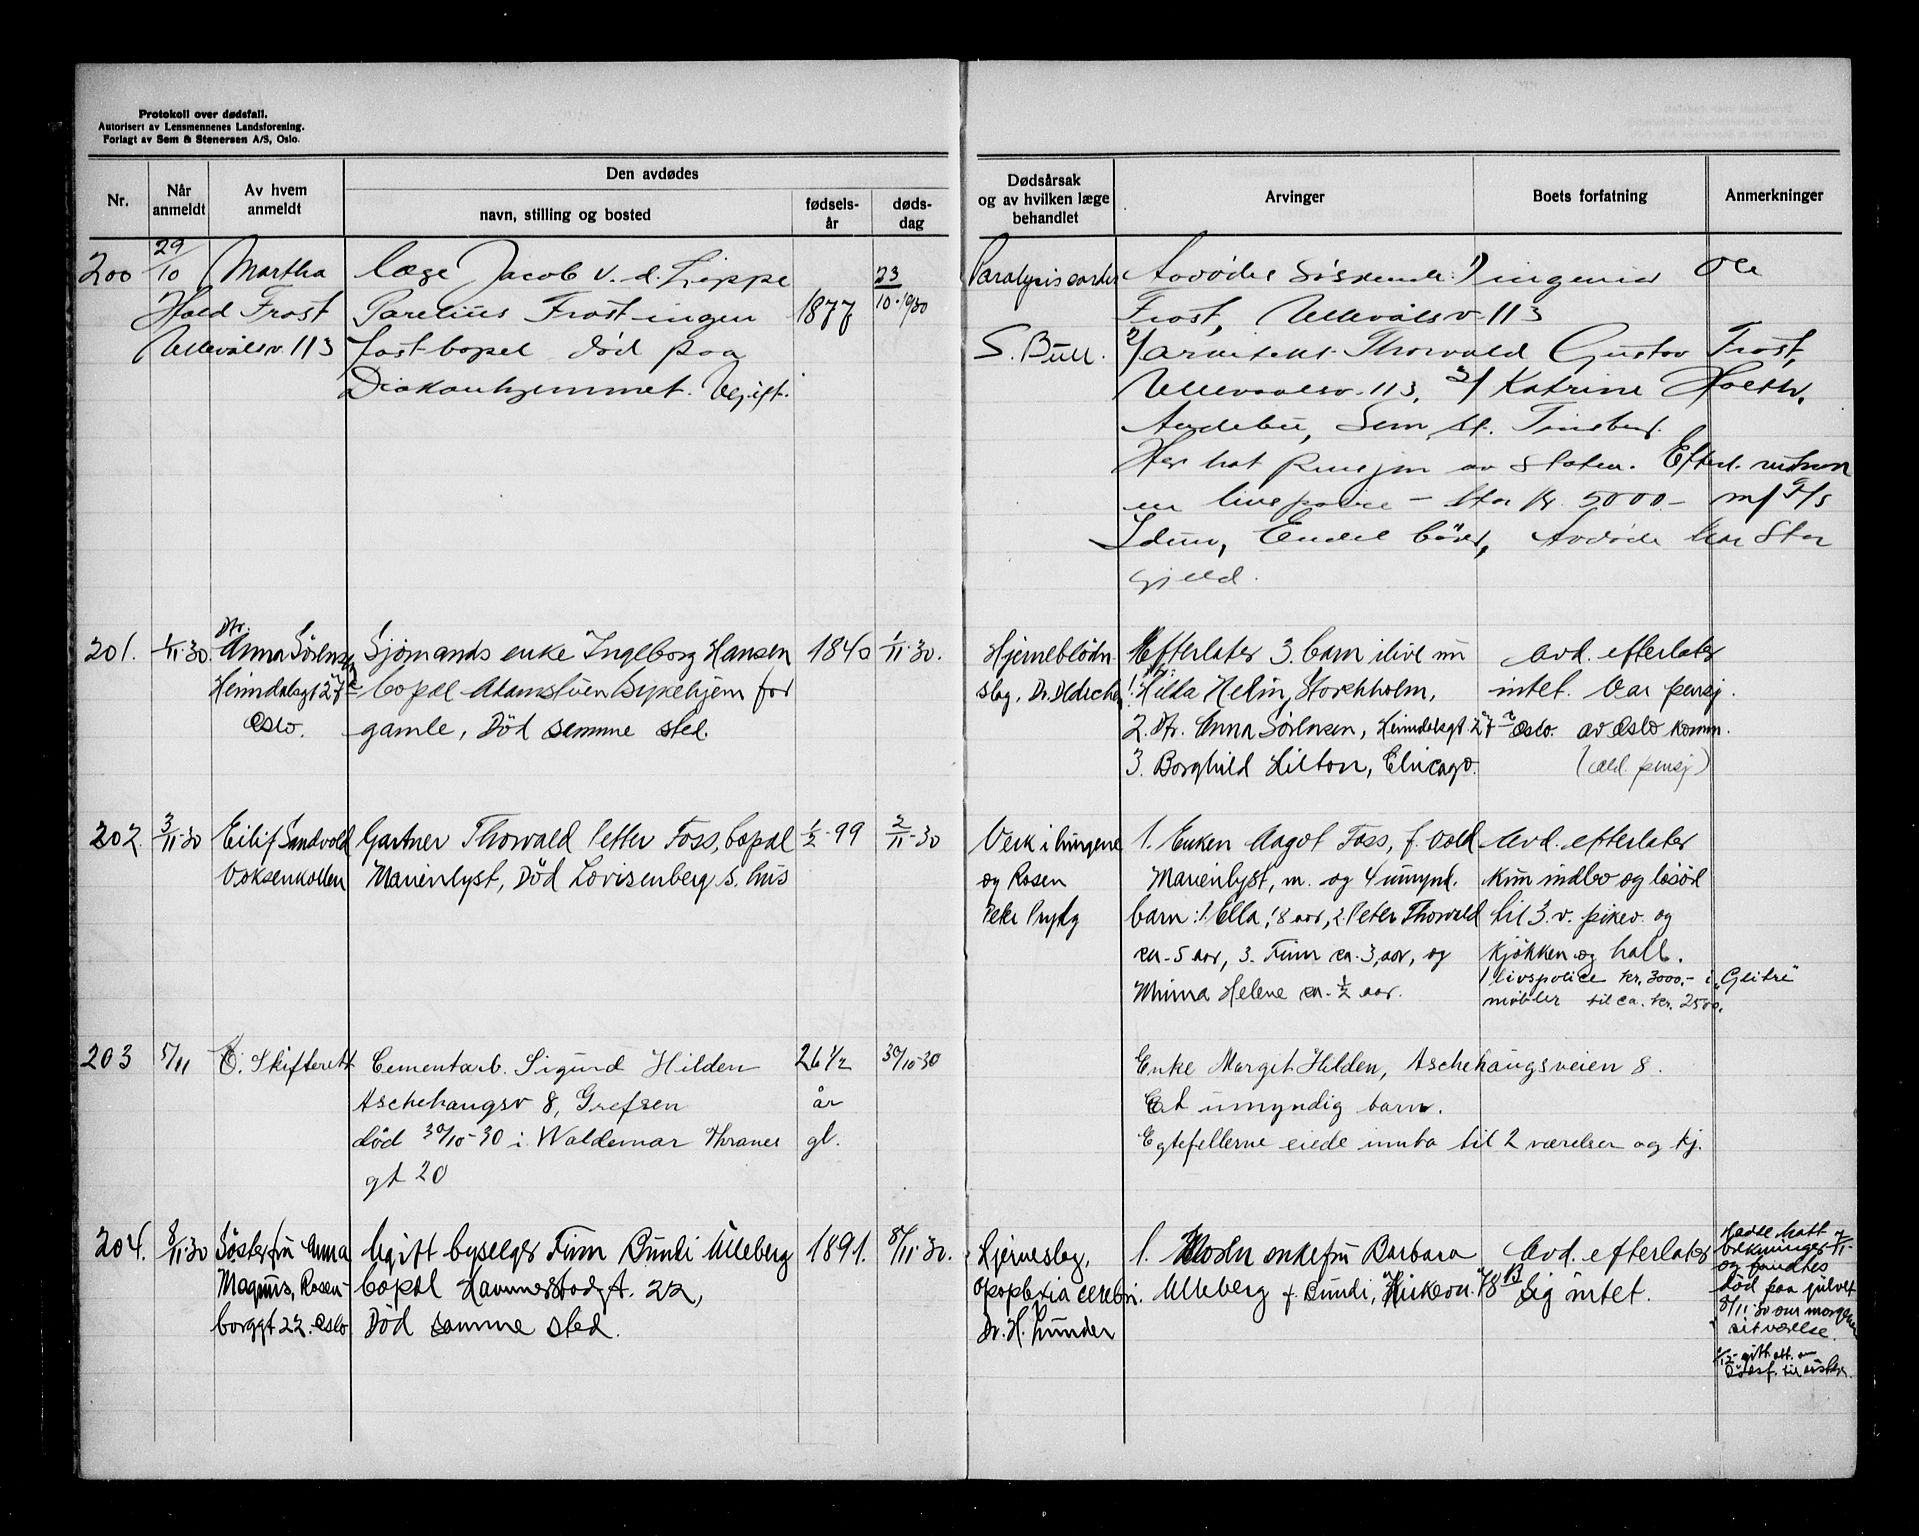 Protokoll over dødsfall.
Autorisert av Lensmennenes Landsforening.
Forlagt av Sem & Stenersen A/S, Oslo.
Nr.
Når anmeldt
Av hvem anmeldt
Den avdødes
navn, stilling og bosted
fødsels-år
døds-dag
Dødsårsak og av hvilken læge behandlet
Arvinger
Boets forfatning
Anmerkninger
200
29/10
Martha
Hald Frost
Ullevålsv. 113
læge Jacob v. d. Lippe
Parelius Frost ingen
fast bopel død paa
Diakonhjemmet. Ugift.
1877
23/10-1930
Paralysis cordis
S. Bull.
Avdødes Søskende: 1) ingeniør Ole
Frost, Ullevålsv 113
2/ arkitekt Thorvald Gustav Frost,
Ullevaalsv. 113, 3/ Katrine Holth,
Andebu, Sem st. Tønsberg.
Har hat pensjon av staten. Efterl.
en livspolice – stor kr. 5000 – m/ F/s
Idun, Endel bøker, Avdøde har stor
gjeld.
201.
1/11-30.
Dtr.
Anna Sørensen
Heimdalsgt 27
Oslo.
Sjømands enke Ingeborg Hansen
bopæl Adamstuen Sykehjem for
gamle, Død samme sted.
1840
1/11-30.
Hjerneblødn.
slag, Dr.
Efterlater 3. barn ilive nu
1. Hilda Helin, Stockholm,
2. Dtr. Anna Sørensen, Heimdalsgt. 27 Oslo.
3. Borghild Hilton, Chicago.
Avd. efterlater
intet. Var pensj.
av Oslo komm.
(ald. pensj)
202.
3/11-30
Eilif Sandvold
Voksenkollen
Gartner Thorvald Petter Foss, bopæl
Marienlyst, Død Lovisenberg s. hus
1/2-99
2/11-30
Verk i lungene
og Rosen
Peter Prydz
1. Enken Aagot Foss, f. Vold
Marienlyst, m. og 4 umynd.
barn: 1. Ella, 8 aar, 2. Peter Thorvald
ca. 5 aar, 3. Finn ca. 3, aar, og
Minna Helene ca. 1/2 aar.
Avd. efterlater
kun indbo og løsøre
til 3. v. pikev. og
kjøkken og hall.
1 livspolice kr. 3000.- i „Glitre"
møbler til ca. kr. 2500.
203
5/11
O. Skifterett
Cementarb. Sigurd Hilden
Aschehougsv 8, Grefsen
død 30/10-30 i Waldemar Thranes
gt 20
26 1/2
år
gl.
30/10-30
Enke Margit Hilden, Aschehougsveien 8.
Et umyndig barn.
Egtefellerne eiede innbo til 2 værelser og kj.
204.
8/11-30
Søster fru Anna
Magnus, Rosen-
borggt 22. Oslo
Ugift byselger Finn Bundi Ulleberg
bopæl Hammerstadgt. 22,
Død samme sted.
1891.
8/11-30.
Hjerneslag,
Apoplexia cerebri.
Dr. H. Lunder
1. Moder enkefru Barbara
Ulleberg f. Bundi, Kirkevn. 78 B
Avd. efterlater
sig intet.
Hadde hatt
7/11-
og fandtes
død paa gulvet
8/11-30 om morgenen
i sit værelse.
2/12- gitt att. om
dødsf. til